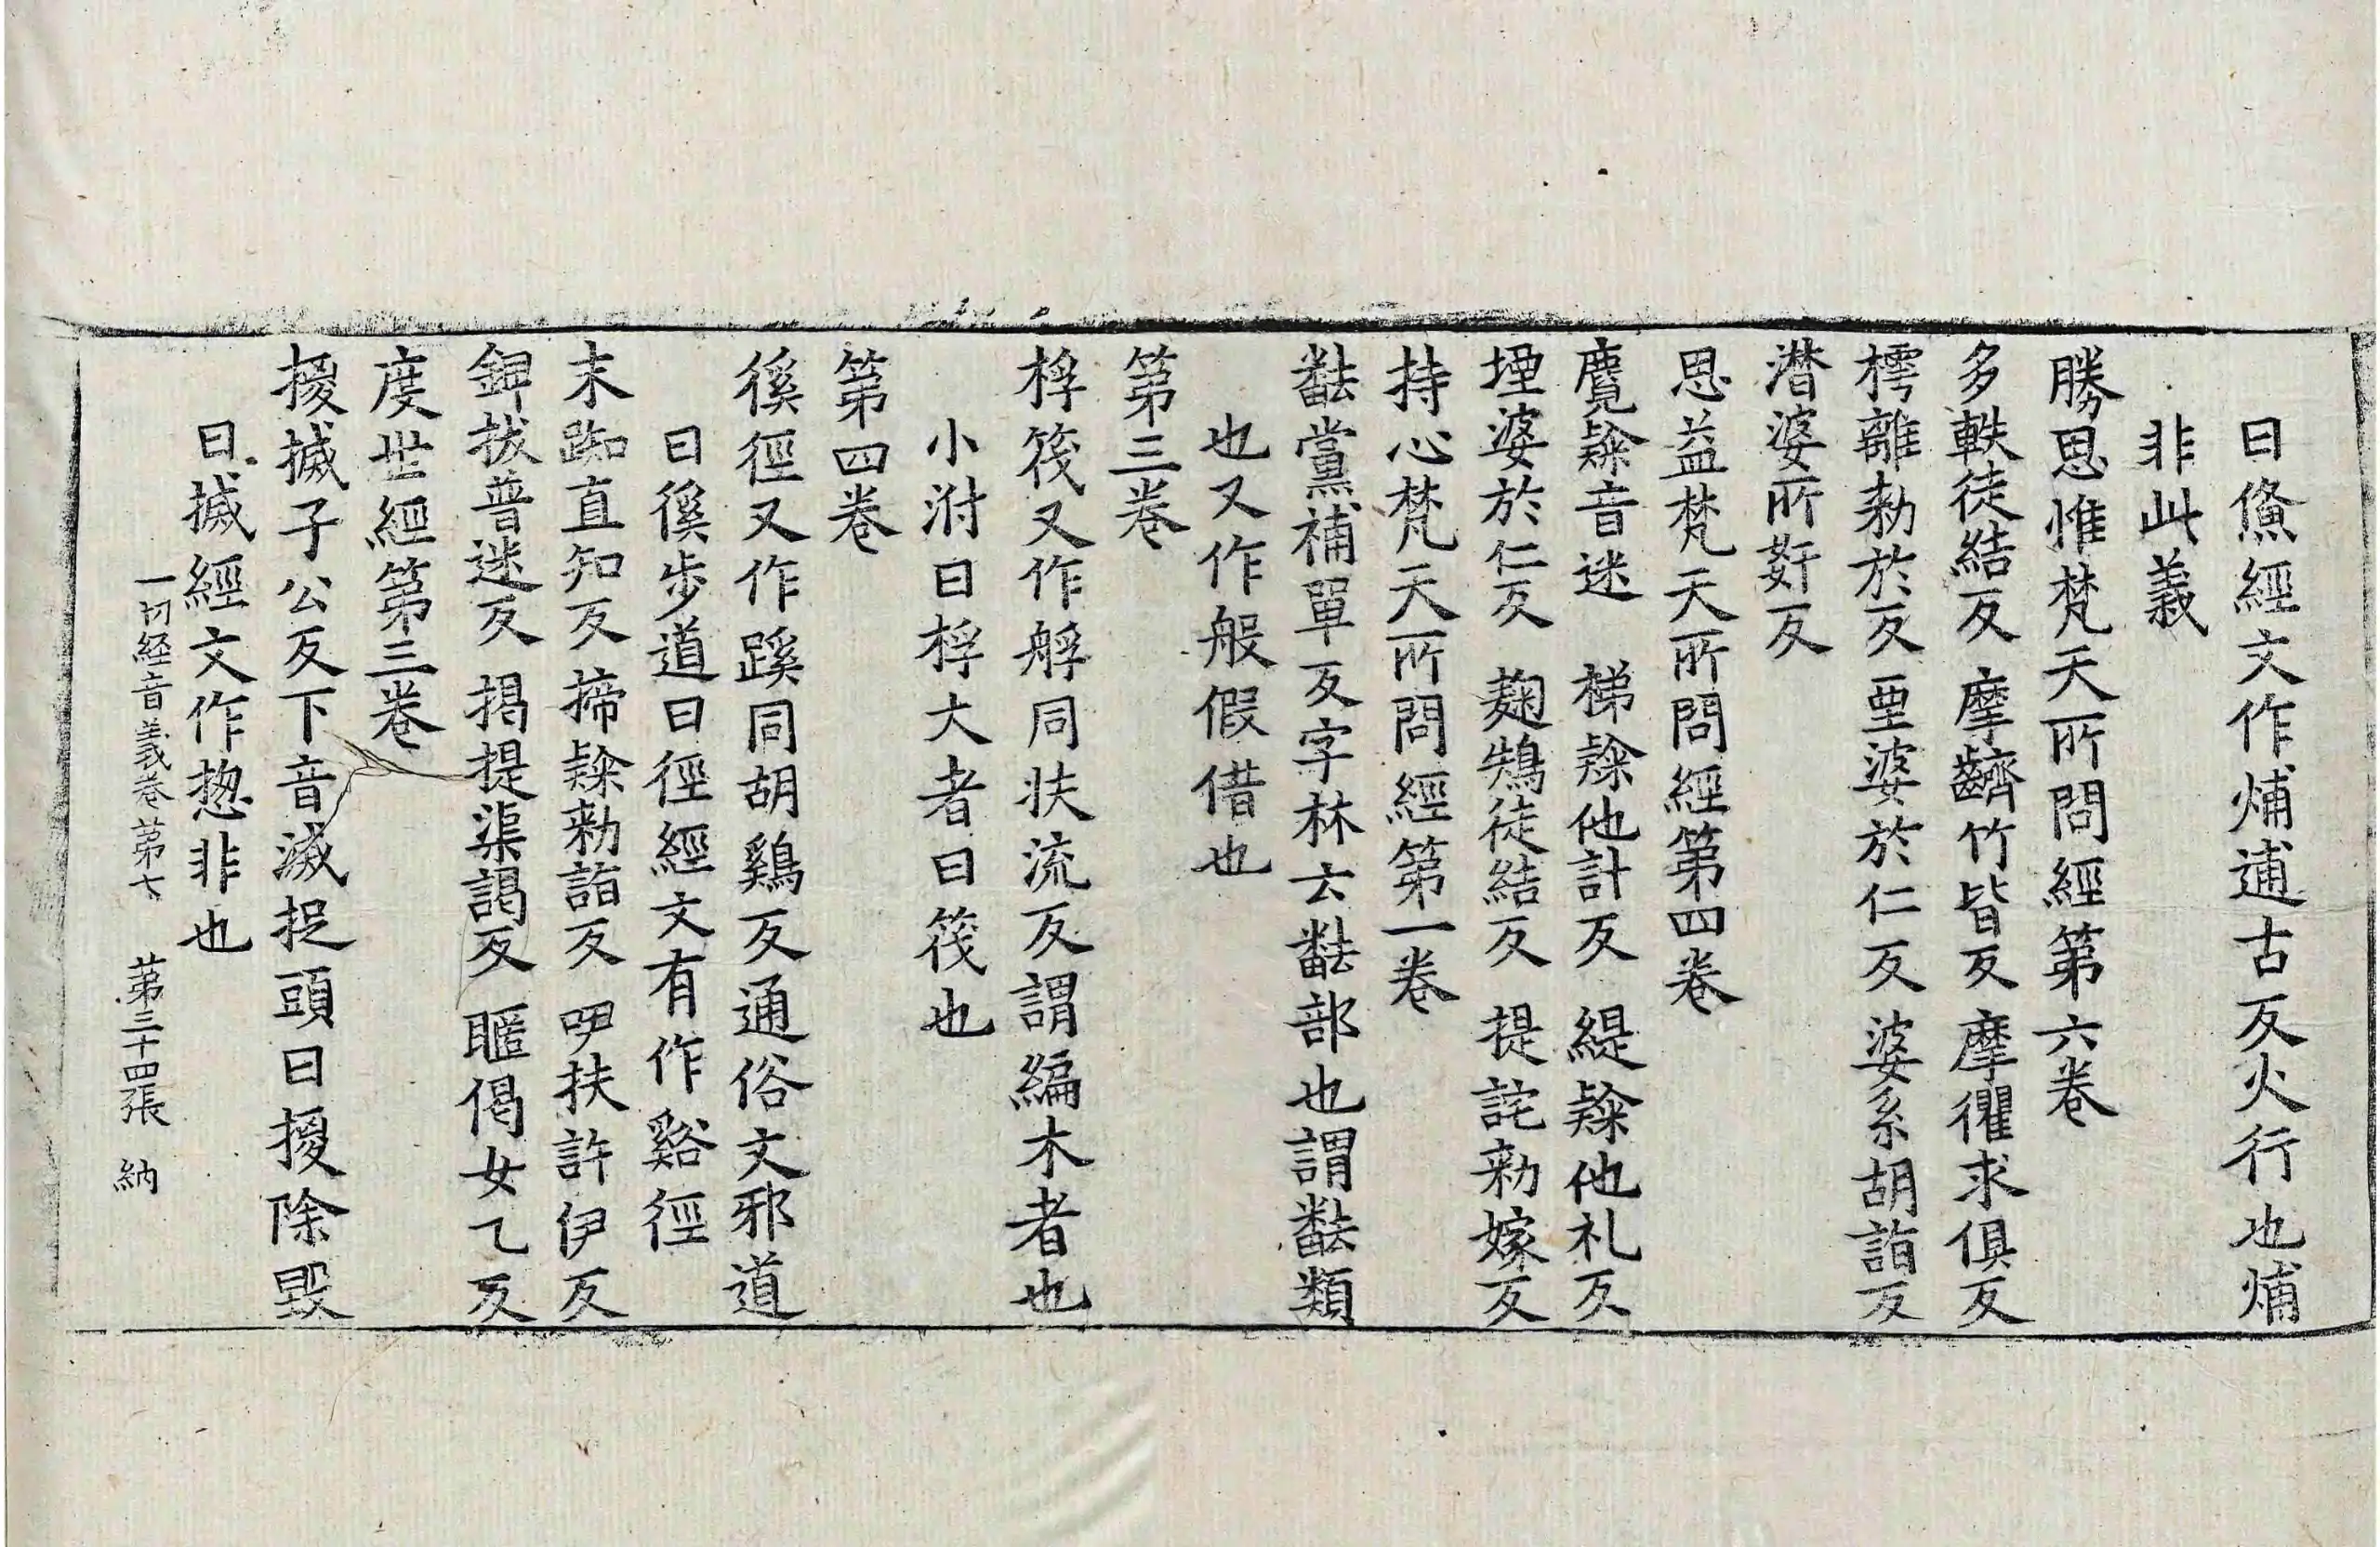 曰𤋎經文作㶻逋古反火行也㶻
非此義
勝思惟梵天所問經第六卷
多軼徒結反 摩齭竹皆反 摩忂求俱反
樗離勑於反 垔婆於仁反 婆系胡詣反
潛婆所姧反
思益梵天所問經第四卷
麑隸音迷 梯隸他計反 緹隸他礼反
堙婆於仁反 麴鴩徒結反 提詫勑嫁反
持心梵天所問經第一卷
黨補單反字林云部也謂類
也又作般假借也
第三卷
桴筏又作艀同扶流反謂編木者也
小泭曰桴大者曰筏也
第四卷
徯徑又作蹊同胡鷄反通俗文邪道
曰徯步道曰徑經文有作谿徑
末踟直知反 揥隸勑詣反 吚扶許伊反
錍拔普迷反 揭提渠謁反 暱偈女乙反
度世經第三卷
揌搣子公反下音滅捉頭曰揌除毀
曰搣經文作揔非也
一切経音義卷第七 第三十四張 納